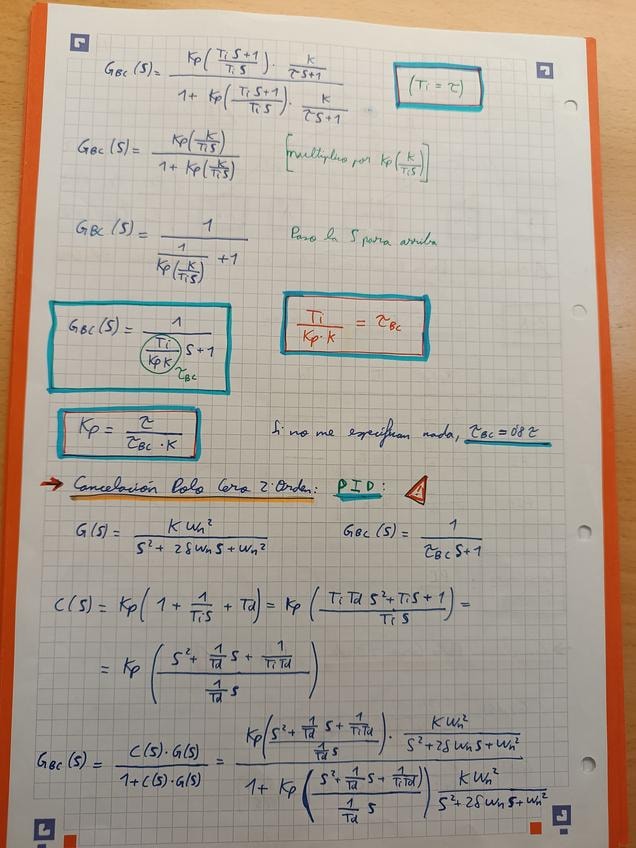 G_BC(S) = (Kp((Ti S+1)/(Ti S)) · K/(τS+1)) / (1 + Kp((Ti S+1)/(Ti S)) · K/(τS+1))
(Ti = τ)
G_BC(S) = (Kp(K/(Ti S))) / (1 + Kp(K/(Ti S)))
[multiplico por Kp(K/(Ti S))]
G_BC(S) = 1 / (1/(Kp(K/(Ti S))) + 1)
Paso la S para arriba
G_BC(S) = 1 / ((Ti/(Kp K)) S + 1)
τ_BC
Ti/(Kp·K) = τ_BC
Kp = τ/(τ_BC · K)
Si no me especifican nada, τ_BC = 0'8 τ
→ Cancelación Polo Cero 2º Orden: PID: ⚠
G(S) = K Wn² / (S² + 2δWn S + Wn²)
G_BC(S) = 1 / (τ_BC S+1)
C(S) = Kp(1 + 1/(Ti S) + Td) = Kp((Ti Td S² + Ti S + 1)/(Ti S)) =
= Kp((S² + (1/Td) S + 1/(Ti Td)) / ((1/Td) S))
G_BC(S) = (C(S)·G(S)) / (1+C(S)·G(S)) = (Kp((S² + (1/Td) S + 1/(Ti Td)) / ((1/Td) S)) · K Wn²/(S² + 2δWn S + Wn²)) / (1 + Kp((S² + (1/Td) S + 1/(Ti Td)) / ((1/Td) S)) K Wn²/(S² + 2δWn S + Wn²))